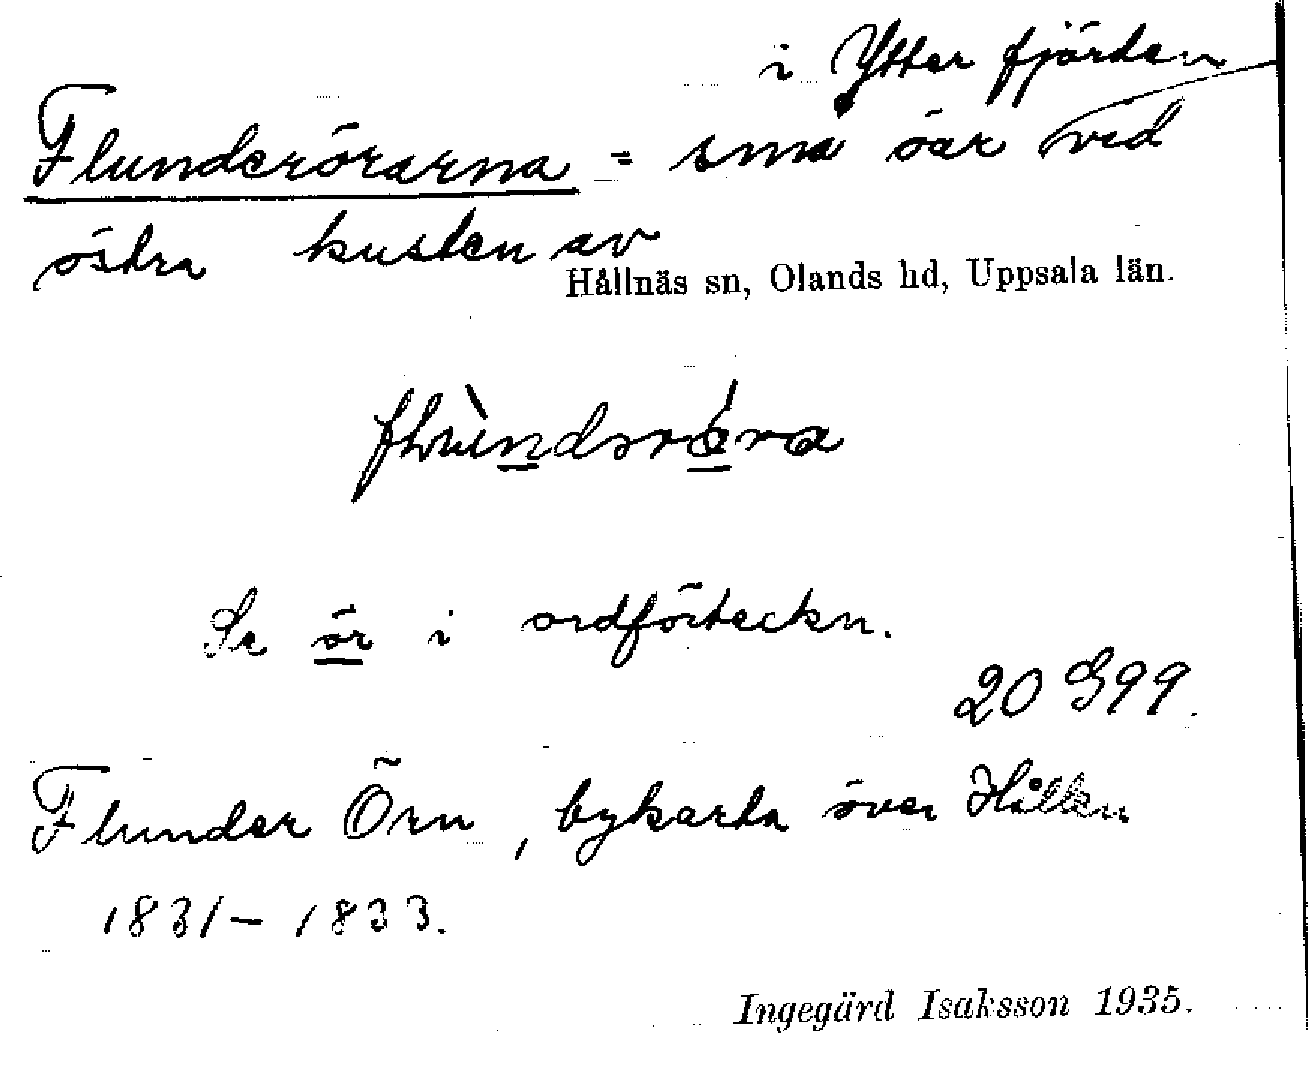 i Ytterfjärden
Flunderörarna = små öar vid
östra kusten av
Hållnäs sn, Olands hd, Uppsala län.
Se ör i ordförteckn.
20 G 99.
Flunder Örn, bykarta över Hållen
1831-1833.
Ingegärd Isaksson 1935.